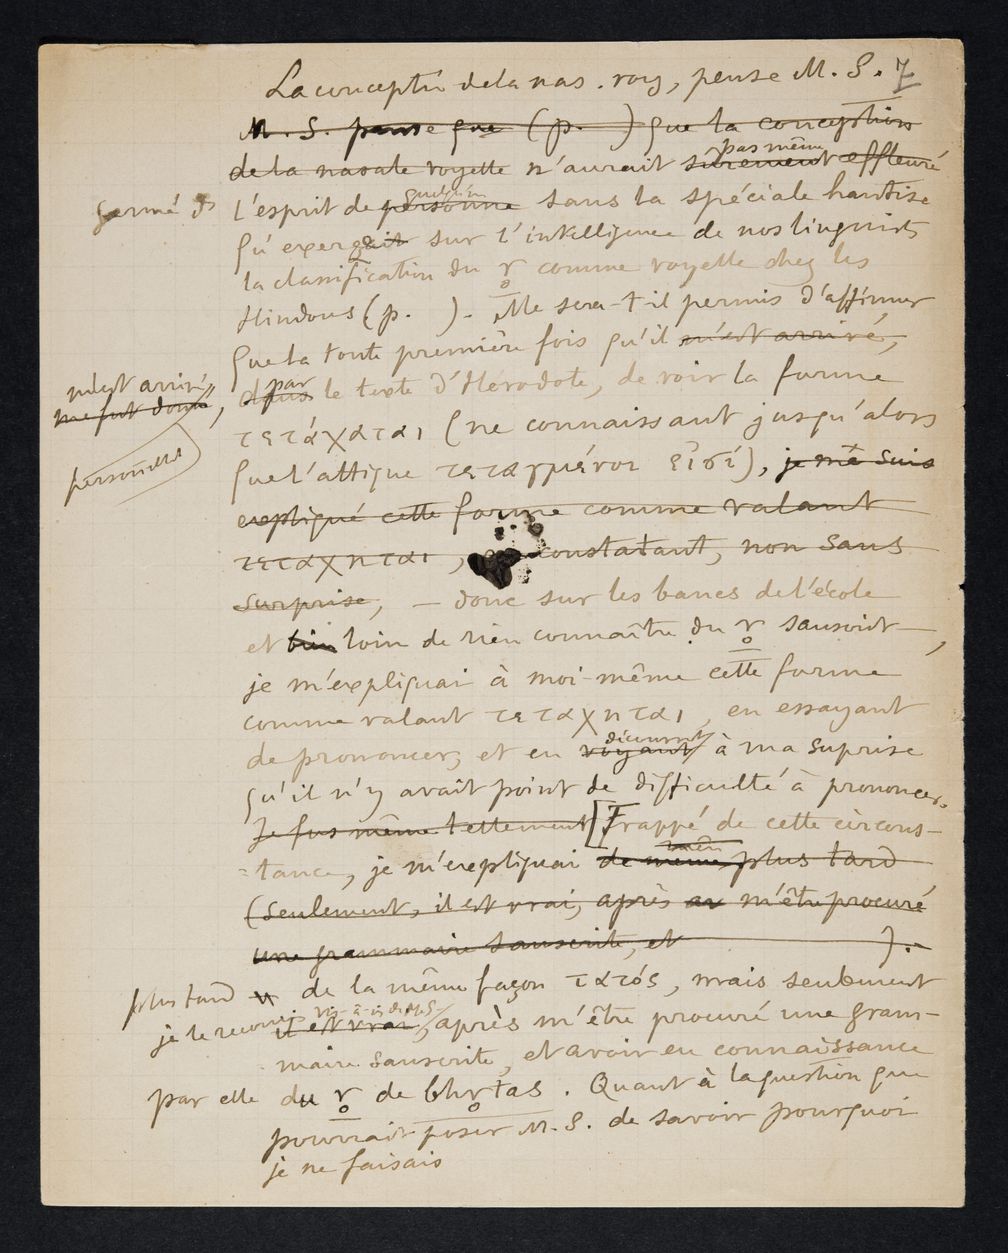 La conceptn de la nas. voy, pense M. S. 7
M. S. pense que (p. ) que la conception
de la nasale voyelle n'aurait sûrement pas même effleuré
germé ds l'esprit de personne quelqu'un sans la spéciale hantise
qu'exerçait sur l'intelligence de nos linguists
la classification du r̥ comme voyelle chez les
Hindous (p. ). Me sera-t-il permis d'affirmer
que la toute première fois qu'il m'est arrivé,
m'est arrivé,
me fut donné, dans par le texte d'Hérodote, de voir la forme
τετάχαται (ne connaissant jusqu'alors
personnellt
que l'attique τεταγμένοι εἰσί), je me suis
expliqué cette forme comme valant
τεταχnται, constatant, non sans
surprise, – donc sur les bancs de l'école
et bien loin de rien connaître du r̥ sanscrit –,
je m'expliquai à moi-même cette forme
comme valant τεταχnται, en essayant
de prononcer, et en voyant découvrant à ma suprise
qu'il n'y avait point de difficulté à prononcer.
Je fus même tellement [Frappé de cette circons-
tance, je m'expliquai de même plus tard
(seulement, il est vrai, après av m'être procuré
une grammaire sanscrite, et ).
plus tard de la même façon τατός, mais seulement
je le reconnais vis-à-vis de M. S. il est vrai, après m'être procuré une gram-
maire sanscrite, et avoir eu connaissance
par elle du r̥ de bhr̥tas. Quant à la question que
pourrait poser M. S. de savoir pourquoi
je ne faisais